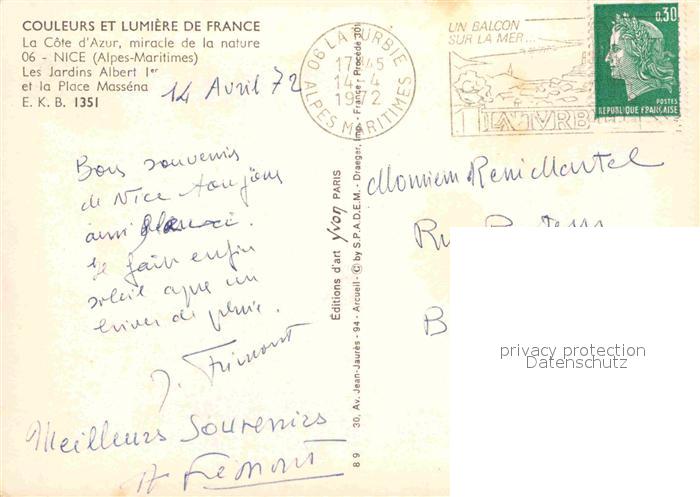 COULEURS ET LUMIÈRE DE FRANCE
La Côte d'Azur, miracle de la nature
06 - NICE (Alpes-Maritimes)
Les Jardins Albert 1er
et la Place Masséna
E. K. B. 1351
14 Avril 72
Bons souvenirs
de Nice toujours
aussi
fait enfin
soleil après un
hiver de pluie.
J. Frémont
Meilleurs Souvenirs
Frémont
Editions d'art Yvon PARIS
30, Av. Jean-Jaurès - 94 - Arcueil - © by S.P.A.D.E.M. - Draeger, Imp. - France - Procédé 301
8 9
06 LA TURBIE
17 H 45
14 - 4
1972
ALPES MARITIMES
UN BALCON
SUR LA MER...
LA TVRB
0,30
POSTES
REPUBLIQUE FRANÇAISE
Monsieur Remi Martel
B
privacy protection
Datenschutz